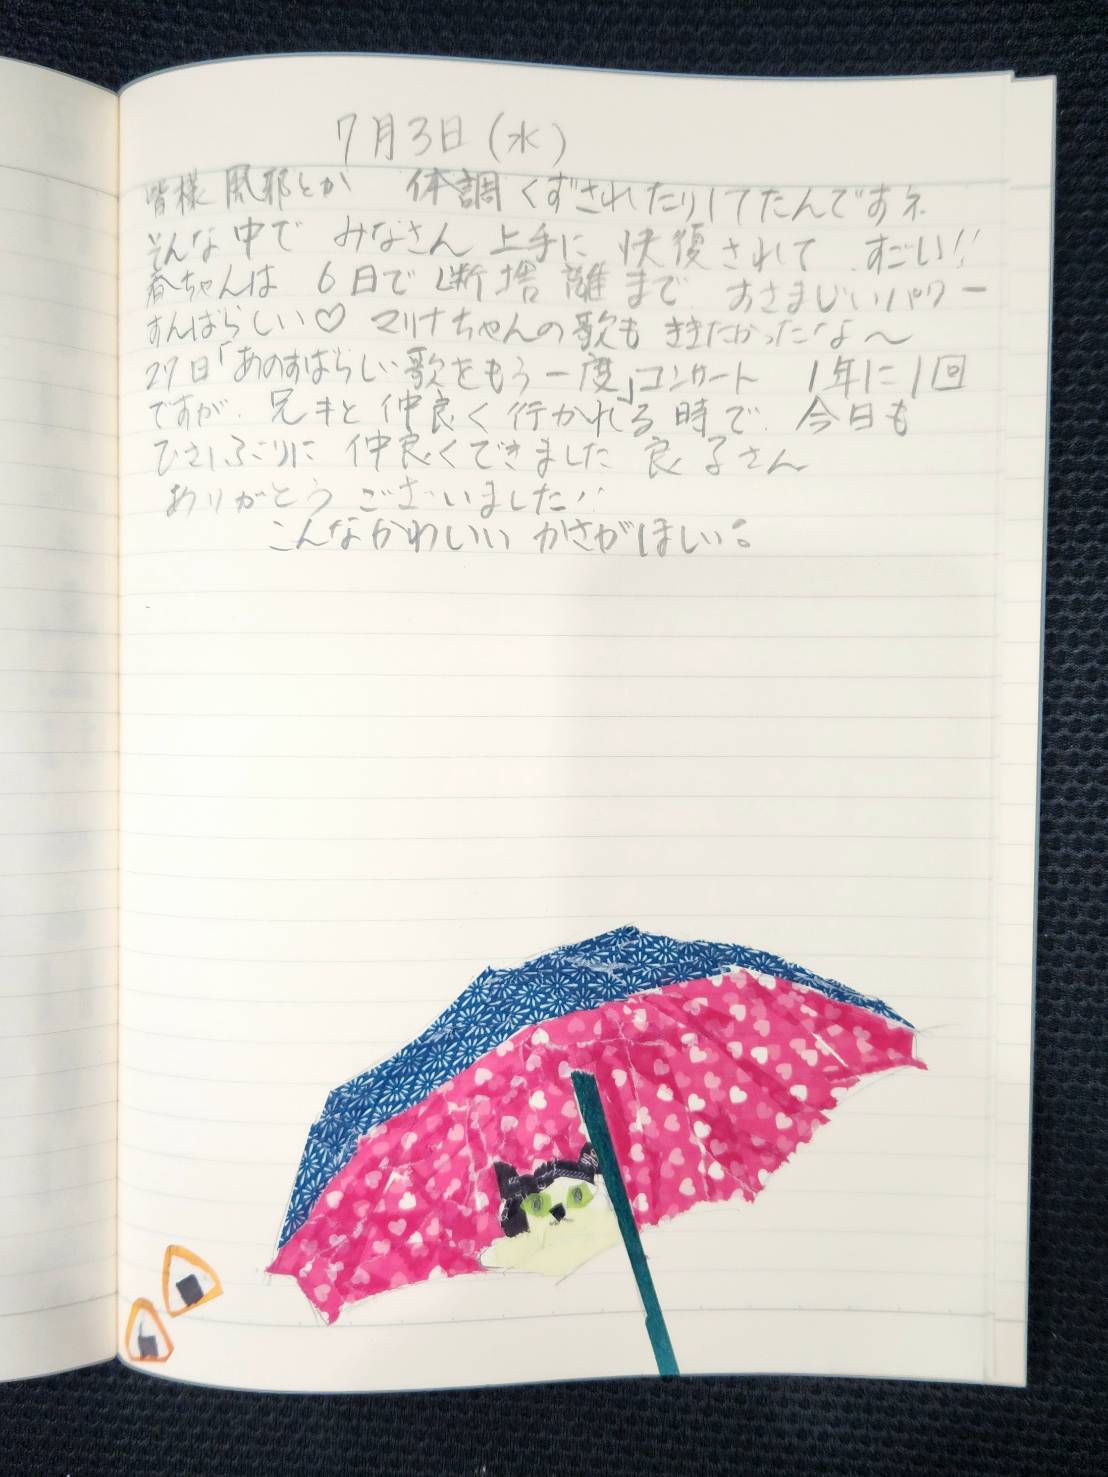 7月3日(水)
皆様風邪とか 体調くずされたりしてたんですネ
そんな中で みなさん上手に快復されて すごい!!
春ちゃんは 6日で断捨離まで すさまじいパワー
すんばらしい♡ マリナちゃんの歌も ききたかったな〜
27日「あのすばらしい歌をもう一度」コンサート 1年に1回
ですが、兄キと仲良く行かれる時で 今日も
ひさしぶりに 仲良くできました 良子さん
ありがとうございました!!
こんなかわいい かさがほしい!